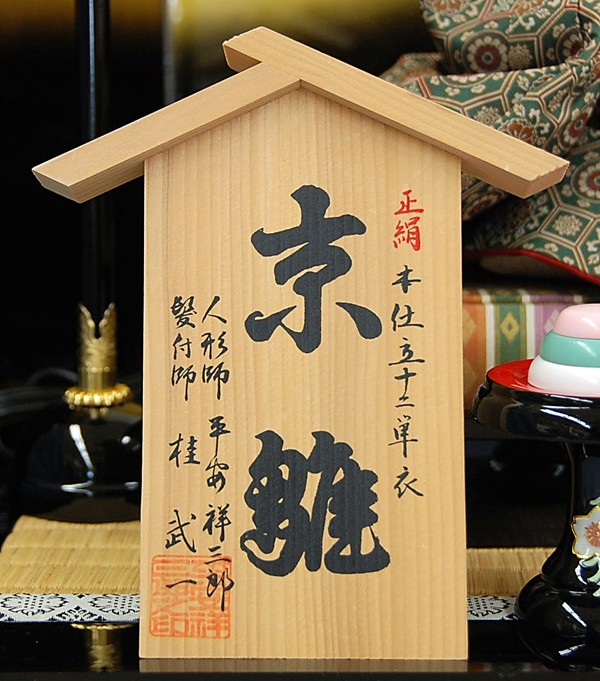 正絹 本仕立十二単衣
京雛
人形師 平安 祥三郎
髪付師 桂 武一